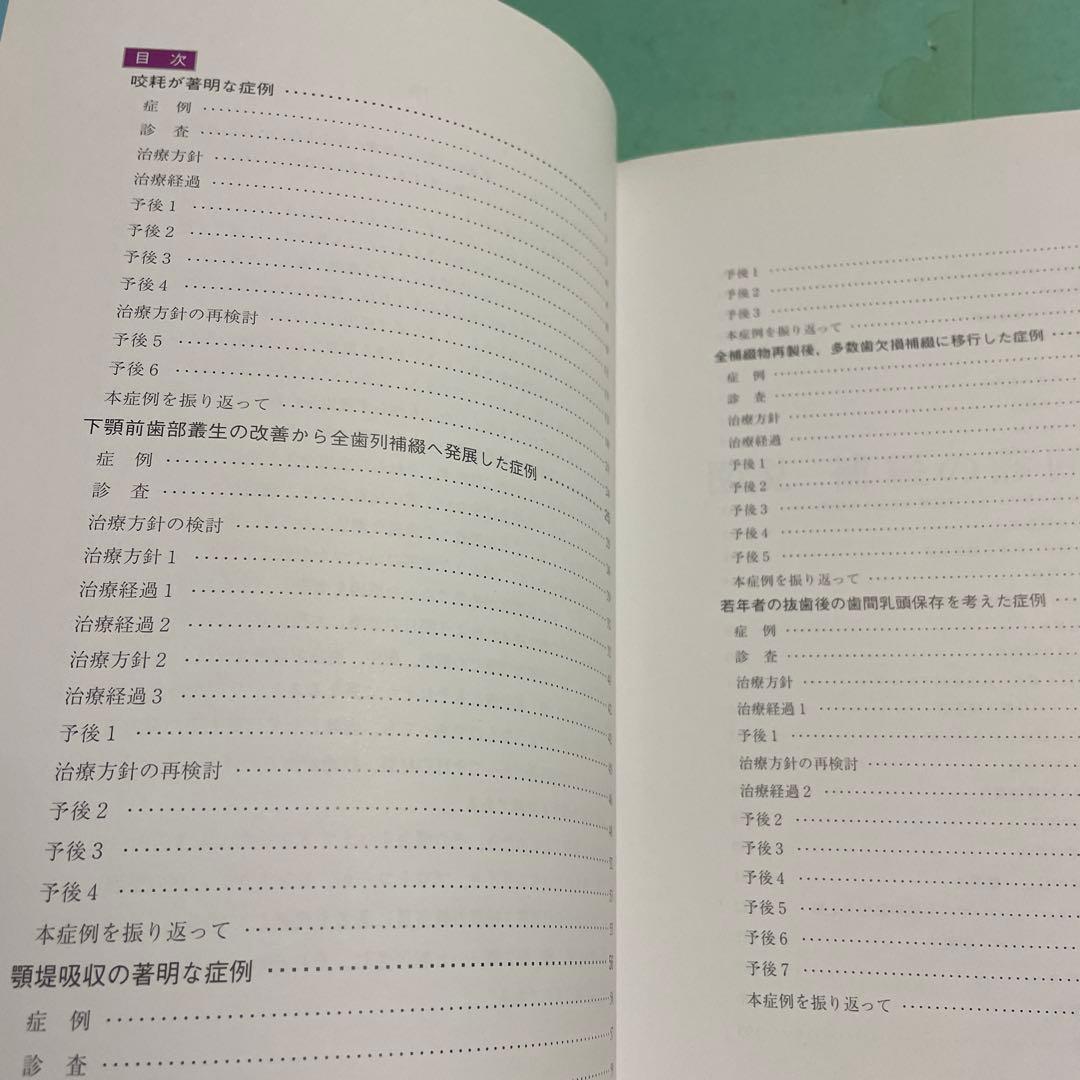 目 次
咬耗が著明な症例
症 例
診 査
治療方針
治療経過
予後1
予後2
予後3
予後4
治療方針の再検討
予後5
予後6
本症例を振り返って
下顎前歯部叢生の改善から全歯列補綴へ発展した症例
症 例
診 査
治療方針の検討
治療方針1
治療経過1
治療経過2
治療方針2
治療経過3
予後1
治療方針の再検討
予後2
予後3
予後4
本症例を振り返って
顎堤吸収の著明な症例
症 例
診 査
予後1
予後2
予後3
本症例を振り返って
全補綴物再製後、多数歯欠損補綴に移行した症例
症 例
診 査
治療方針
治療経過
予後1
予後2
予後3
予後4
予後5
本症例を振り返って
若年者の抜歯後の歯間乳頭保存を考えた症例
症 例
診 査
治療方針
治療経過1
予後1
治療方針の再検討
治療経過2
予後2
予後3
予後4
予後5
予後6
予後7
本症例を振り返って